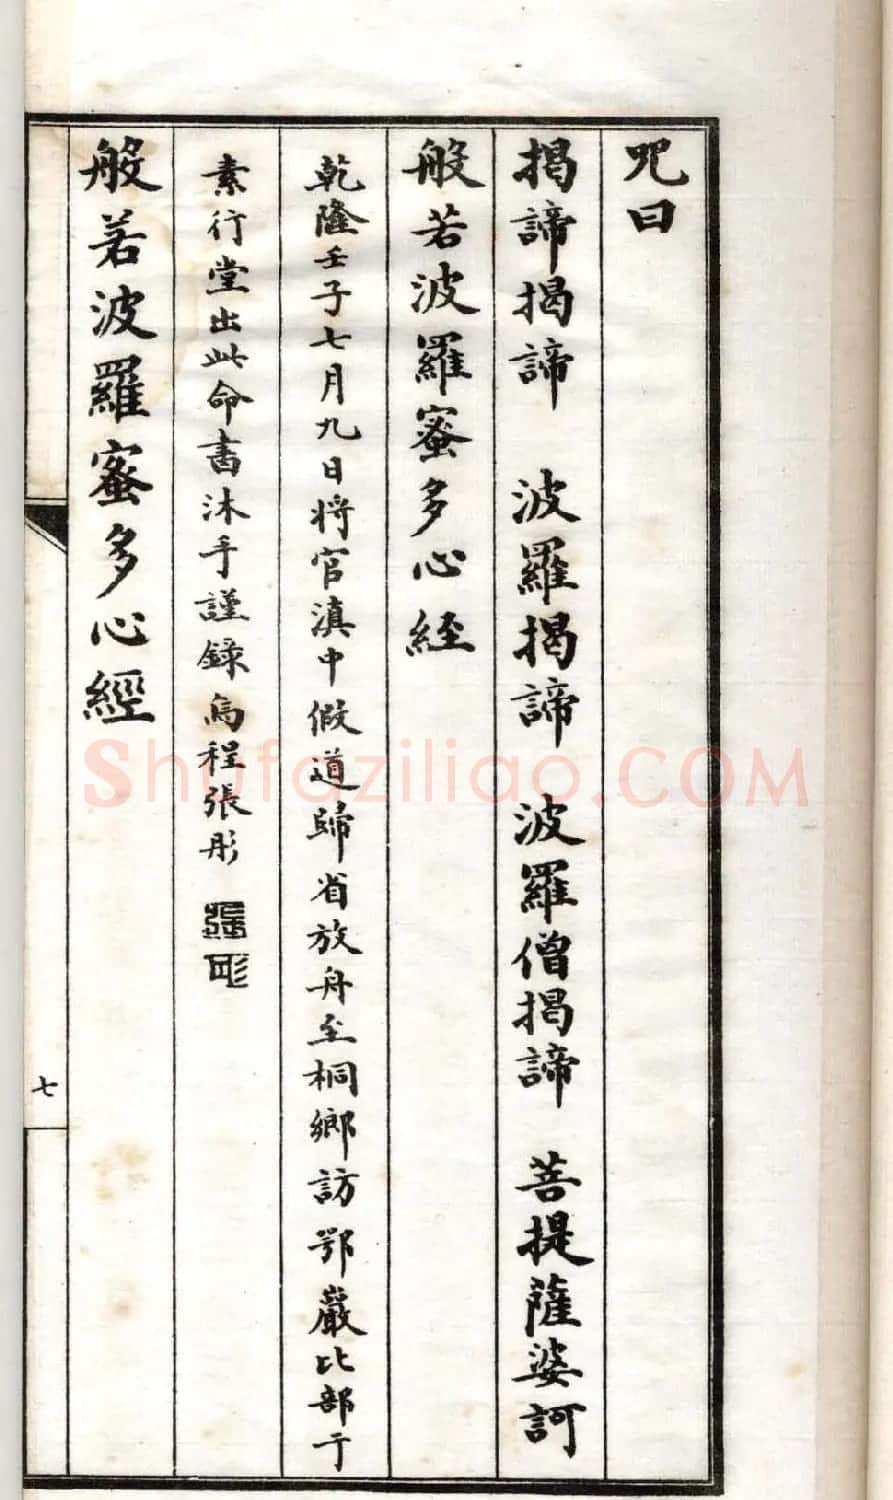 咒曰
揭諦揭諦 波羅揭諦 波羅僧揭諦 菩提薩婆訶
般若波羅蜜多心経
乾隆壬子七月九日将官滇中假道歸省放舟至桐鄉訪鄂巖比部于
素行堂出此命書沐手謹錄烏程張彤
張彤
般若波羅蜜多心經
七
Shufaziliao.COM